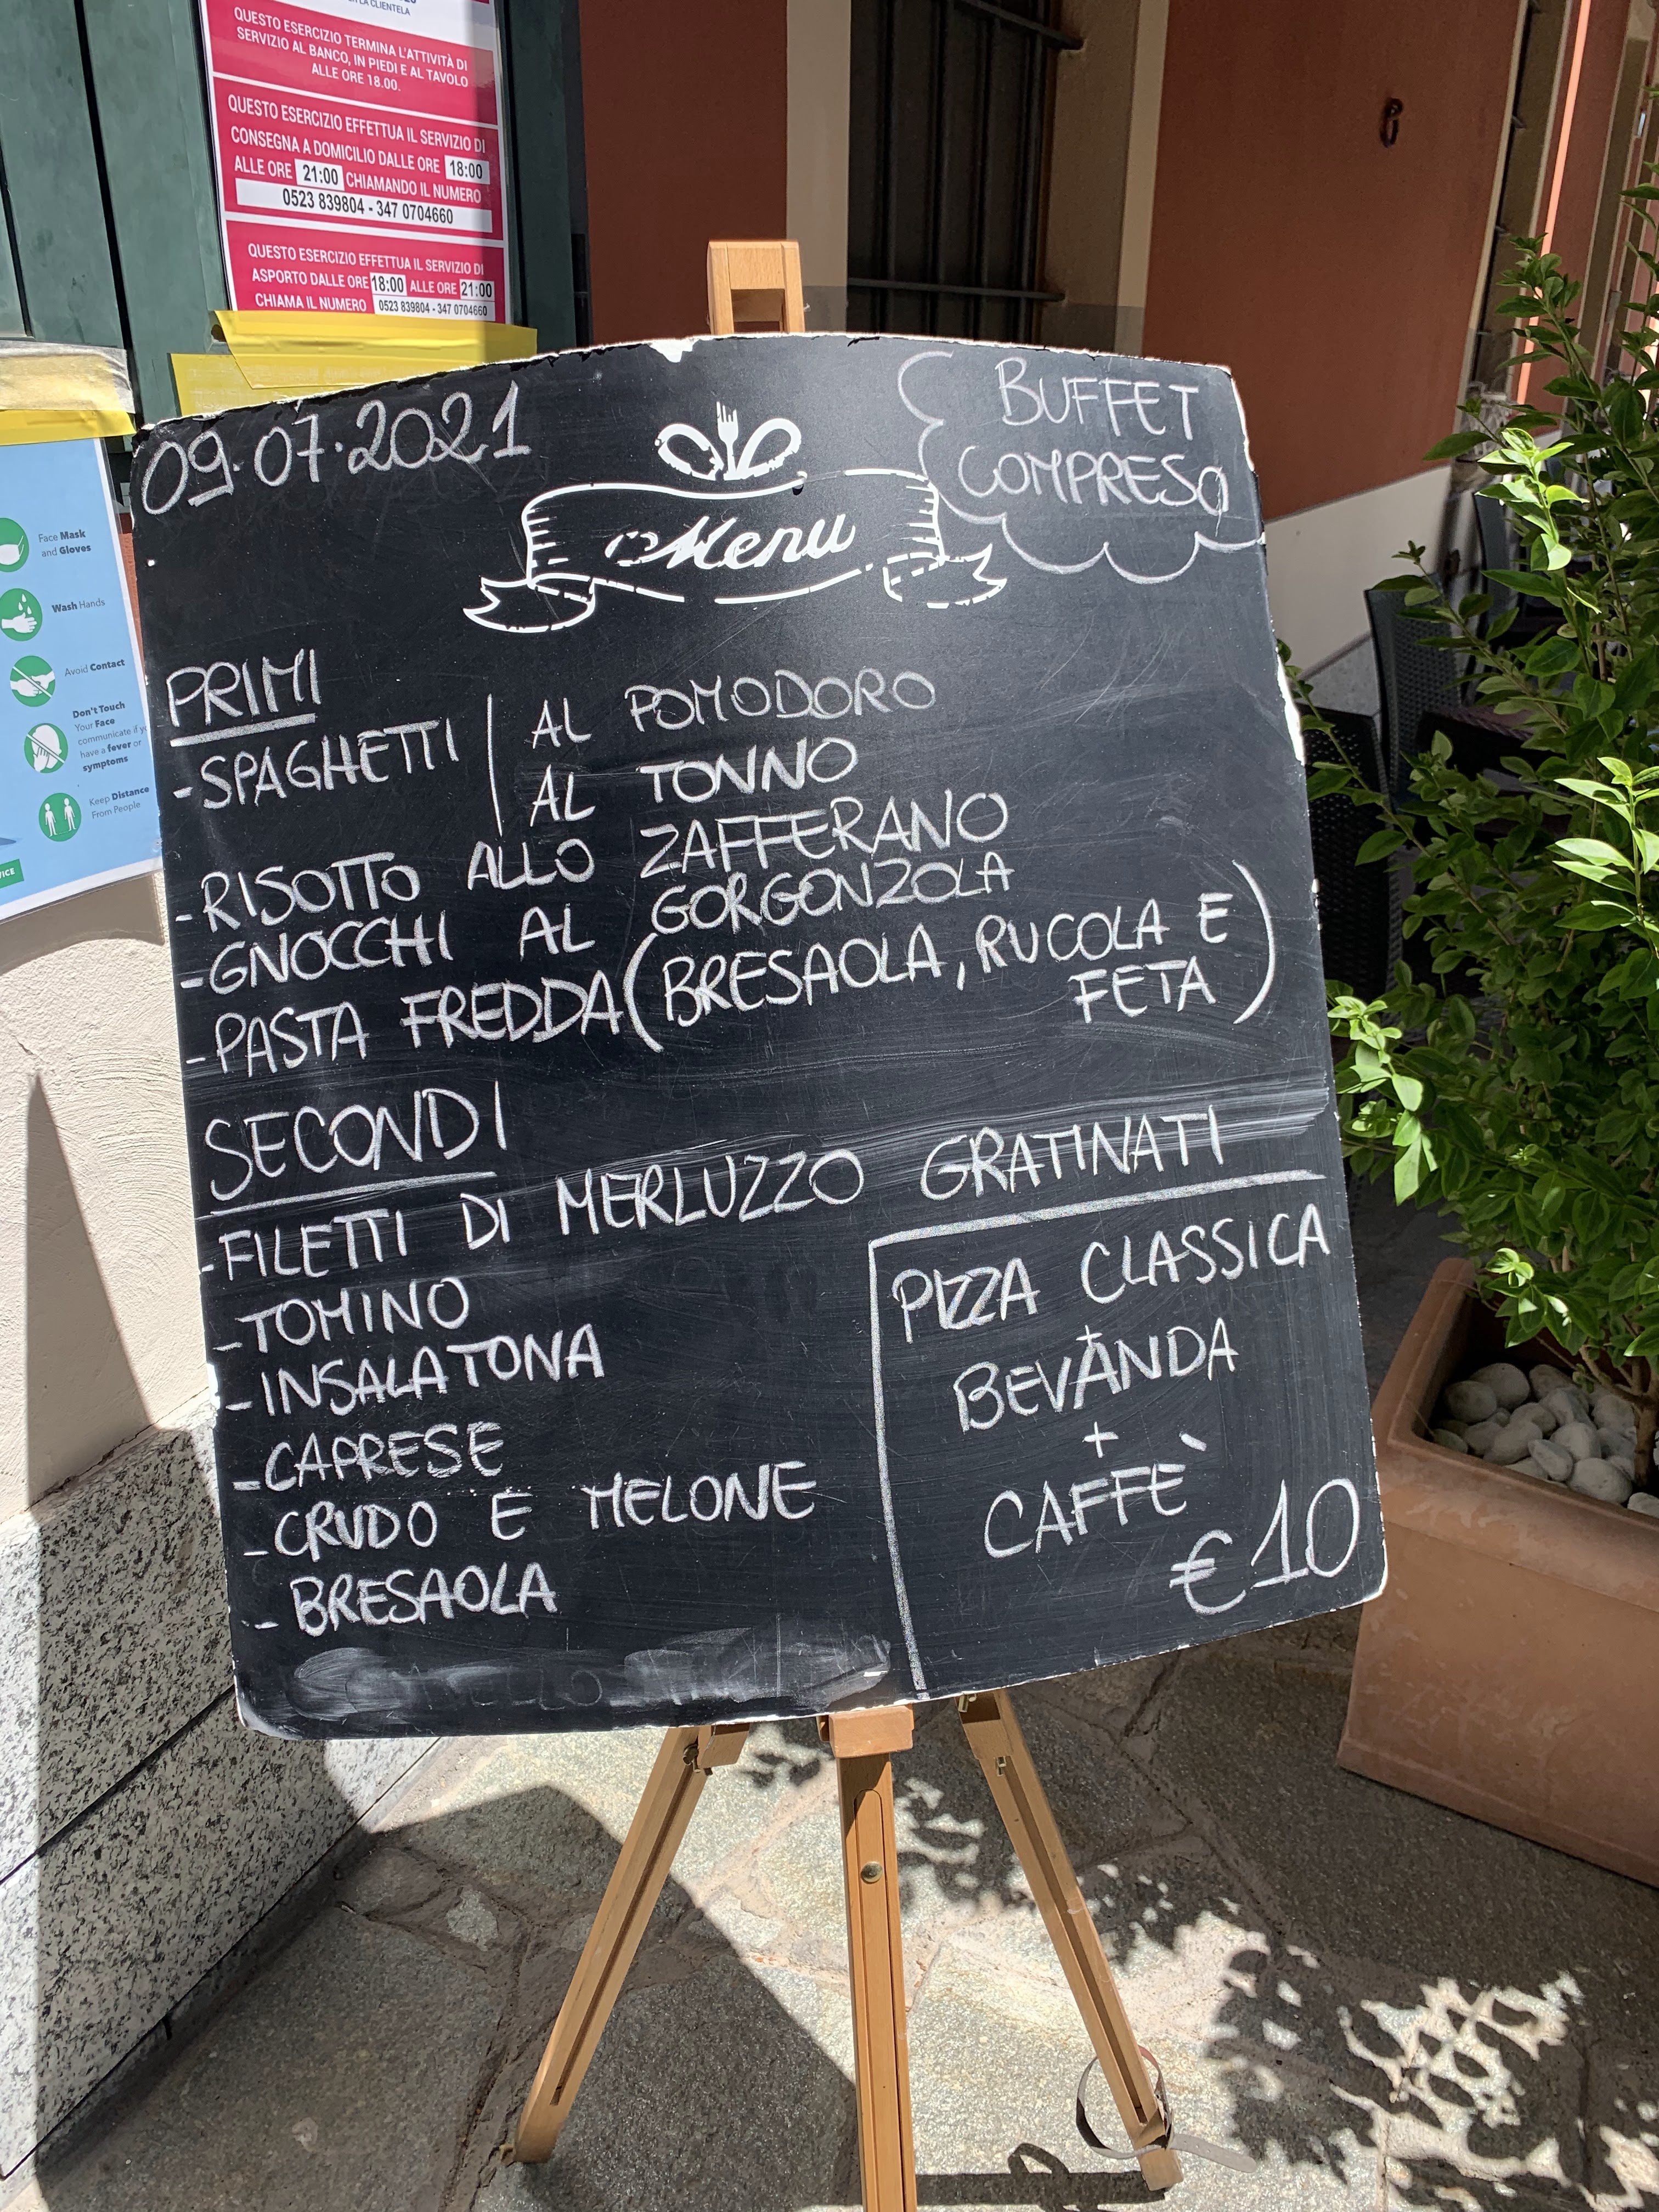 LA CLIENTELA
QUESTO ESERCIZIO TERMINA L'ATTIVITÀ DI
SERVIZIO AL BANCO, IN PIEDI E AL TAVOLO
ALLE ORE 18.00.
QUESTO ESERCIZIO EFFETTUA IL SERVIZIO DI
CONSEGNA A DOMICILIO DALLE ORE 18:00
ALLE ORE 21:00 CHIAMANDO IL NUMERO
0523 839804 - 347 0704660
QUESTO ESERCIZIO EFFETTUA IL SERVIZIO DI
ASPORTO DALLE ORE 18:00 ALLE ORE 21:00
CHIAMA IL NUMERO 0523 839804 - 347 0704660
Face Mask
and Gloves
Wash Hands
Avoid Contact
Don't Touch
Your Face
communicate if
have a fever or
symptoms
Keep Distance
From People
09.07.2021
BUFFET
COMPRESO
Menu
PRIMI
-SPAGHETTI | AL POMODORO
| AL TONNO
-RISOTTO ALLO ZAFFERANO
-GNOCCHI AL GORGONZOLA
-PASTA FREDDA (BRESAOLA, RUCOLA E
FETA)
SECONDI
-FILETTI DI MERLUZZO GRATINATI
-TOMINO
-INSALATONA
-CAPRESE
-CRUDO E MELONE
-BRESAOLA
PIZZA CLASSICA
+
BEVANDA
+
CAFFÈ
€10